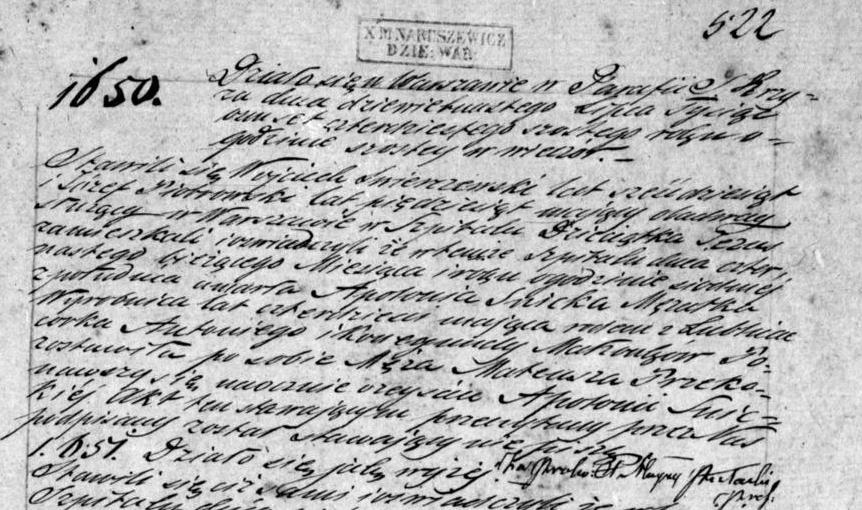 522
X M NARUSZEWICZ
DZIE: WAR
1650.
Działo się w Warszawie w Parafii S Krzy-
ża dnia dziewietnastego Lipca Tysiąc
ośmset czterdziestego szostego roku o-
godzinie szostey w wieczór. –
Stawili się Woyciech Swierszewski lat sześćdziesiąt
i Józef Piotrowski lat pięćdziesiąt maiący obadway
służący w Warszawie w Szpitalu Dzieciątka Jezus
zamieszkali i oświadczyli że w temże Szpitalu dnia czter-
nastego bieżącego Miesiąca i roku o godzinie siodmey
z południa umarła Apolonia Snicka Mężatka
Wyrobnica lat czterdzieści maiąca rodem z Lublina
córka Antoniego i Konegundy Po-
zostawiła po sobie Męża Mateusza Przeko-
nawszy się naocznie o zejściu Apolonii Snic-
kiéj Akt ten stawaiącym przeczytany przez Nas
podpisany został stawaiący nie
1.651. Działo się jak wyżej.
Stawili się ciż sami i oświadczyli że w
Szpitalu